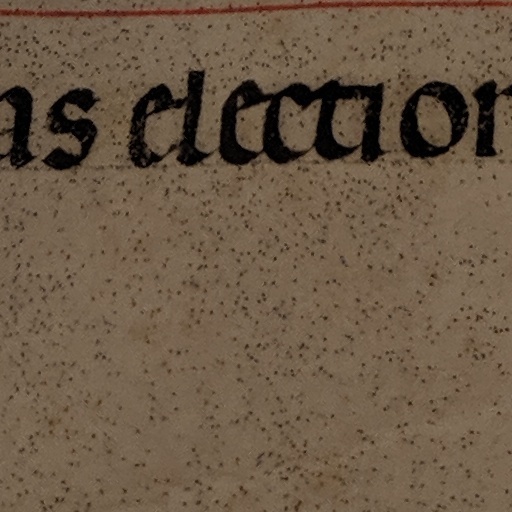 as election